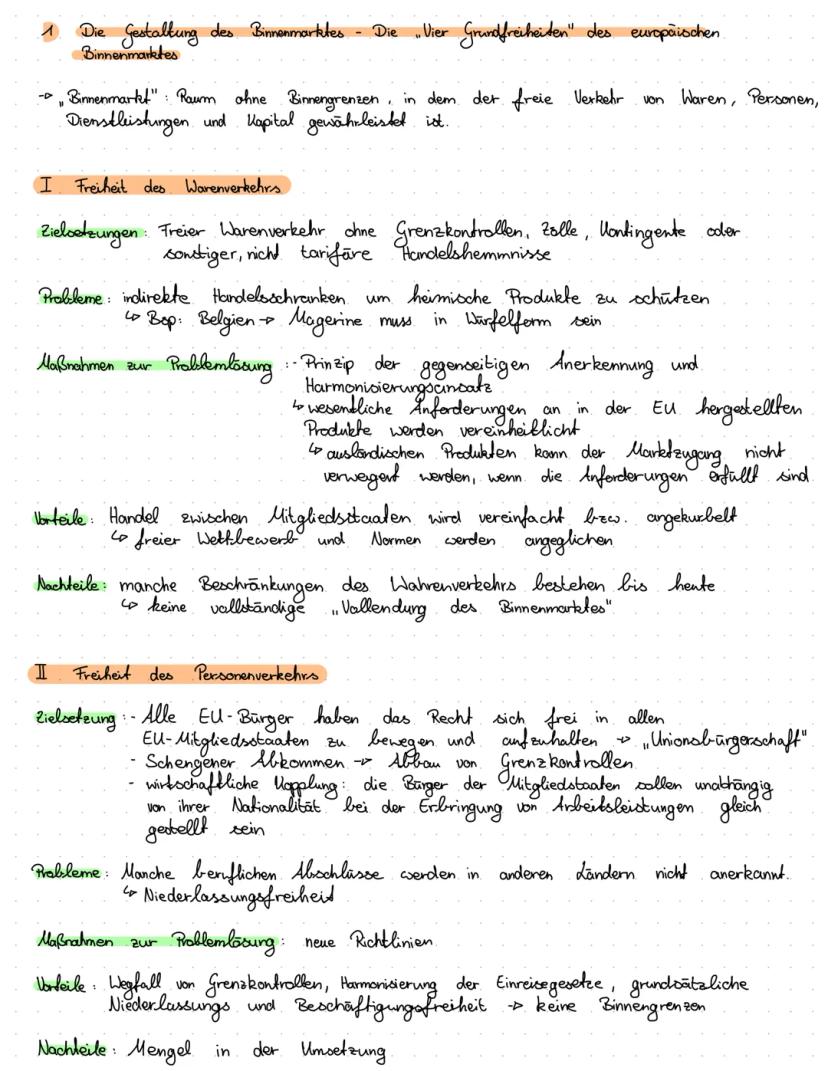 1 Die Gestaltung des Binnenmarktes - Die „Vier Grundfreiheiten" des europäischen
Binnenmarktes
→ „Binnenmarkt": Raum ohne Binnengrenzen, in dem der freie Verkehr von Waren, Personen,
Dienstleistungen und Kapital gewährleistet ist.
I Freiheit des Warenverkehrs
Zielsetzungen: Freier Warenverkehr ohne Grenzkontrollen, Zölle, Kontingente oder
sonstiger, nicht tarifäre Handelshemmnisse
Probleme: indirekte Handelsschranken um heimische Produkte zu schützen
↳ Bsp: Belgien → Magerine muss in Würfelform sein
Maßnahmen zur Problemlösung: - Prinzip der gegenseitigen Anerkennung und
Harmonisierungsansatz
↳ wesentliche Anforderungen an in der EU hergestellten
Produkte werden vereinheitlicht
↳ ausländischen Produkten kann der Marktzugang nicht
verwegert werden, wenn die Anforderungen erfüllt sind
Vorteile: Handel zwischen Mitgliedsstaaten wird vereinfacht bzw. angekurbelt
↳ freier Wettbewerb und Normen werden angeglichen
Nachteile: manche Beschränkungen des Wahrenverkehrs bestehen bis heute
↳ keine vollständige „Vollendung des Binnenmarktes"
II Freiheit des Personenverkehrs
Zielsetzung: - Alle EU-Bürger haben das Recht sich frei in allen
EU-Mitgliedsstaaten zu bewegen und aufzuhalten → „Unionsbürgerschaft"
- Schengener Abkommen → Abbau von Grenzkontrollen
- wirtschaftliche Kopplung: die Bürger der Mitgliedstaaten sollen unabhängig
von ihrer Nationalität bei der Erbringung von Arbeitsleistungen gleich
gestellt sein
Probleme: Manche beruflichen Abschlüsse werden in anderen Ländern nicht anerkannt.
↳ Niederlassungsfreiheit
Maßnahmen zur Problemlösung: neue Richtlinien
Vorteile: Wegfall von Grenzkontrollen, Harmonisierung der Einreisegesetze, grundsätzliche
Niederlassungs und Beschäftigungsfreiheit → keine Binnengrenzen
Nachteile: Mengel in der Umsetzung